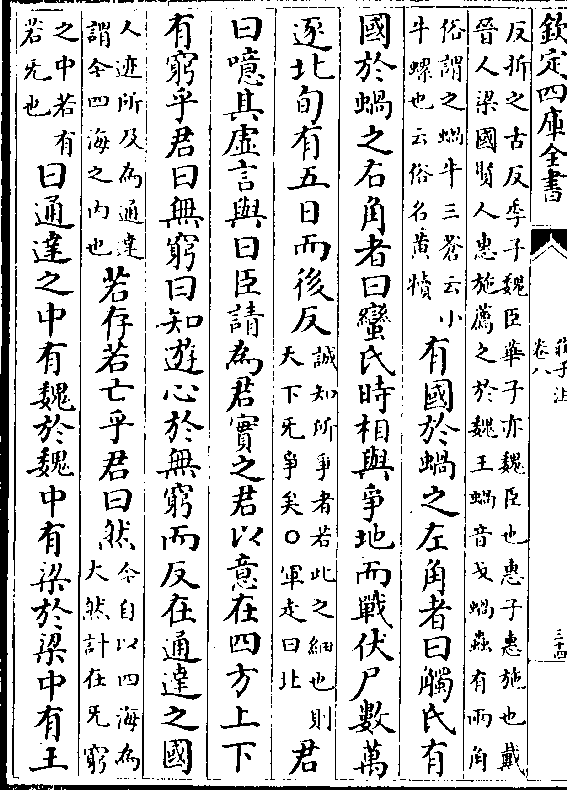 欽定四庫全書
莊子注
卷八
三十四
反折之古反季子魏臣華子亦魏臣也惠子惠施也戴
晉人梁國賢人惠施薦之於魏王蝸音戈蝸蟲有兩角
俗謂之蝸牛三蒼云小
牛螺也云俗名黃犢
有國於蝸之左角者曰觸氏有
國於蝸之右角者曰蠻氏時相與爭地而戰伏尸數萬
逐北旬有五日而後反
誠知所爭者若此之細也則
天下无爭矣○軍走曰北
君
曰噫其虛言與曰臣請為君實之君以意在四方上下
有窮乎君曰無窮曰知遊心於無窮而反在通達之國
人迹所及為通達
謂今四海之內也
若存若亡乎君曰然
今自以四海為
大然計在无窮
之中若有
若无也
曰通達之中有魏於魏中有梁於梁中有王